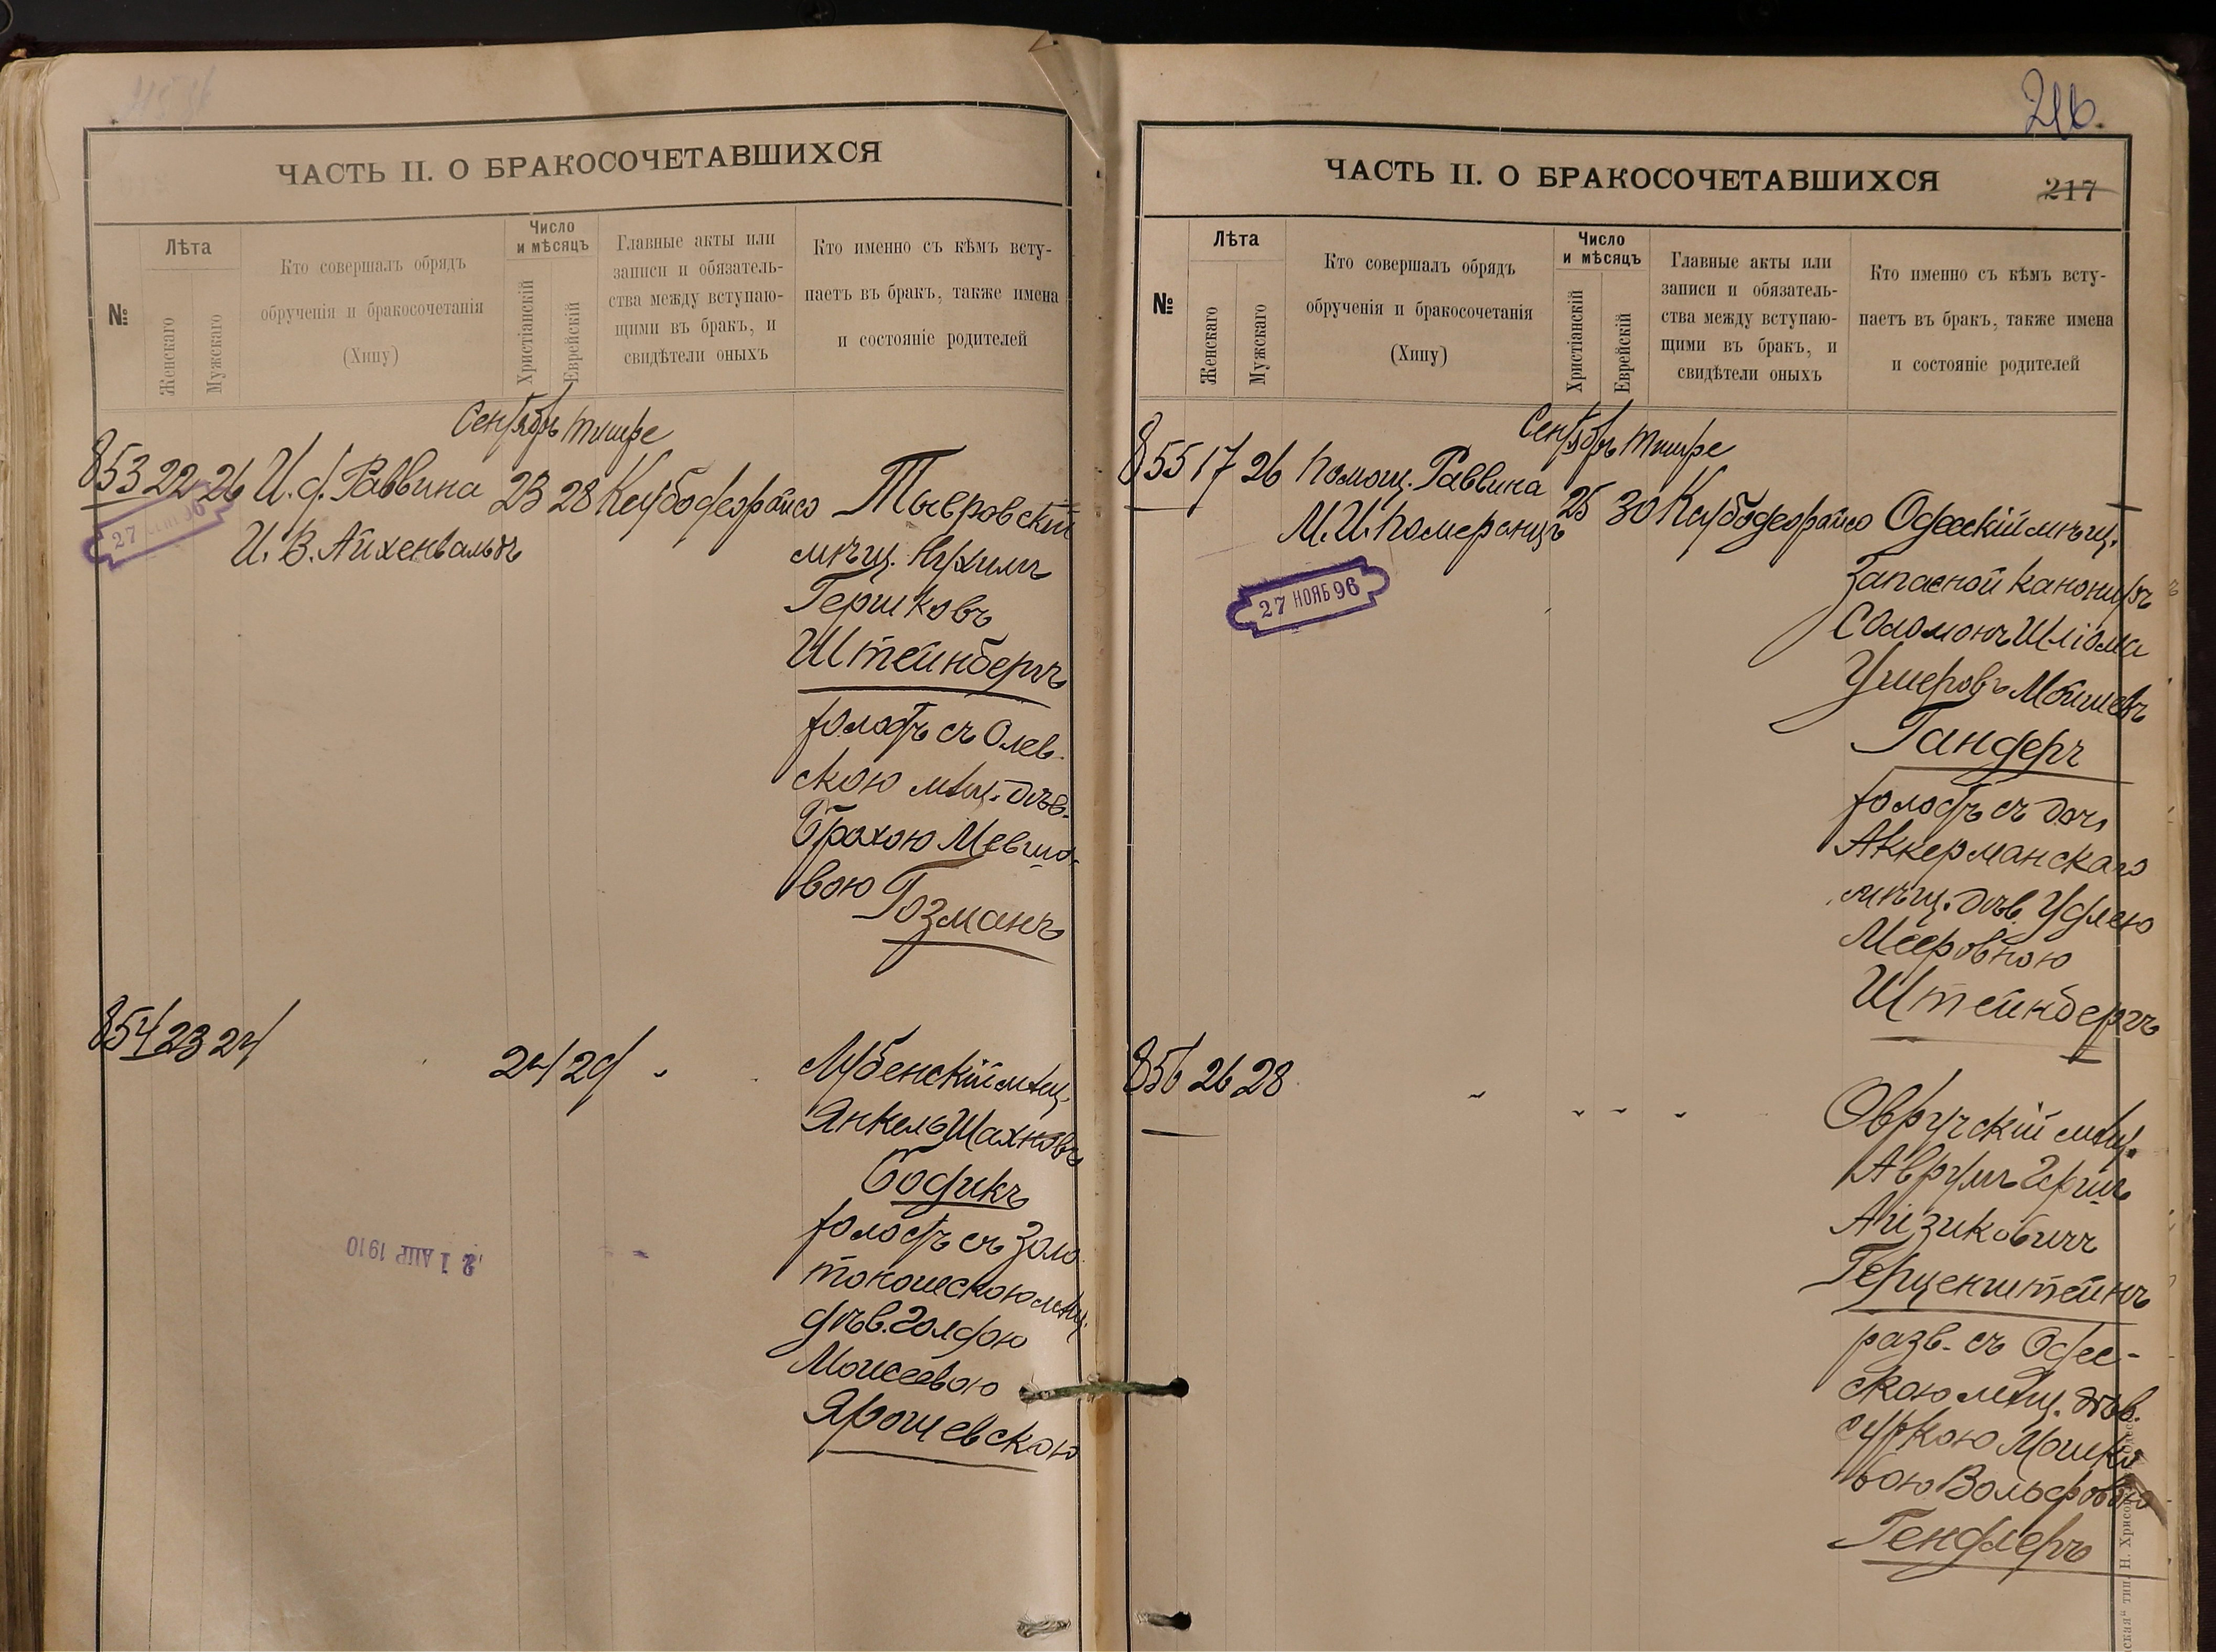 ЧАСТЬ II. О БРАКОСОЧЕТАВШИХСЯ
№
Лѣта
Женскаго
Мужскаго
Кто совершалъ обрядъ
обрученія и бракосочетанія
(Хипу)
Число
и мѣсяцъ
Христіанскій
Еврейскій
Главные акты или
записи и обязатель-
ства между вступаю-
щими въ бракъ, и
свидѣтели оныхъ
Кто именно съ кѣмъ всту-
паетъ въ бракъ, также имена
и состояніе родителей
Сентябрь Тишре
853 22 26 И. д. Раввина 23 28 Кисубодеорайсо Тывровскій
И. В. Айхенвальдъ
27 96
мѣщ. Нухимъ
Гершковъ
Штейнбергъ
холостъ съ Олев-
скою мѣщ. дѣв.
Брахою Мевшо-
вою Гозманъ
854 23 24 24 29 "
Лубенскій мѣщ.
Янкель Шахновъ
Бодикъ
холостъ съ Золо
тоношскою мѣщ.
дѣв. Голдою
Моисеевою
Ярошевскою
21 АПР 1910
216.
ЧАСТЬ II. О БРАКОСОЧЕТАВШИХСЯ
217
№
Лѣта
Женскаго
Мужскаго
Кто совершалъ обрядъ
обрученія и бракосочетанія
(Хипу)
Число
и мѣсяцъ
Христіанскій
Еврейскій
Главные акты или
записи и обязатель-
ства между вступаю-
щими въ бракъ, и
свидѣтели оныхъ
Кто именно съ кѣмъ всту-
паетъ въ бракъ, также имена
и состояніе родителей
Сентябрь Тишре
855 17 26 Помощ. Раввина 25 30 Кисубодеорайсо Одесскій мѣщ.
М. И. Померанцъ
27 НОЯБ 96
Запасной канониръ
Соломонъ Шліома
Ушеровъ Мойшевъ
Гандеръ
холостъ съ доч.
Аккерманскаго
мѣщ. дѣв. Удлею
Мееровною
Штейнбергъ
856 26 28 " " " "
Овручскій мѣщ.
Аврумъ Герш
Айзиковичъ
Герценштейнъ
разв. съ Одес-
скою мѣщ. дѣв.
Суркою Мошко
вою Вольфовою
Гендлеръ
тип. Н. Хрисо